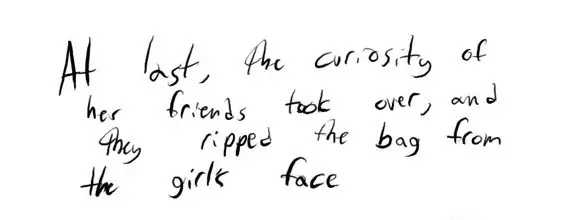 At last, the curiosity of
her friends took over, and
they ripped the bag from
the girls face